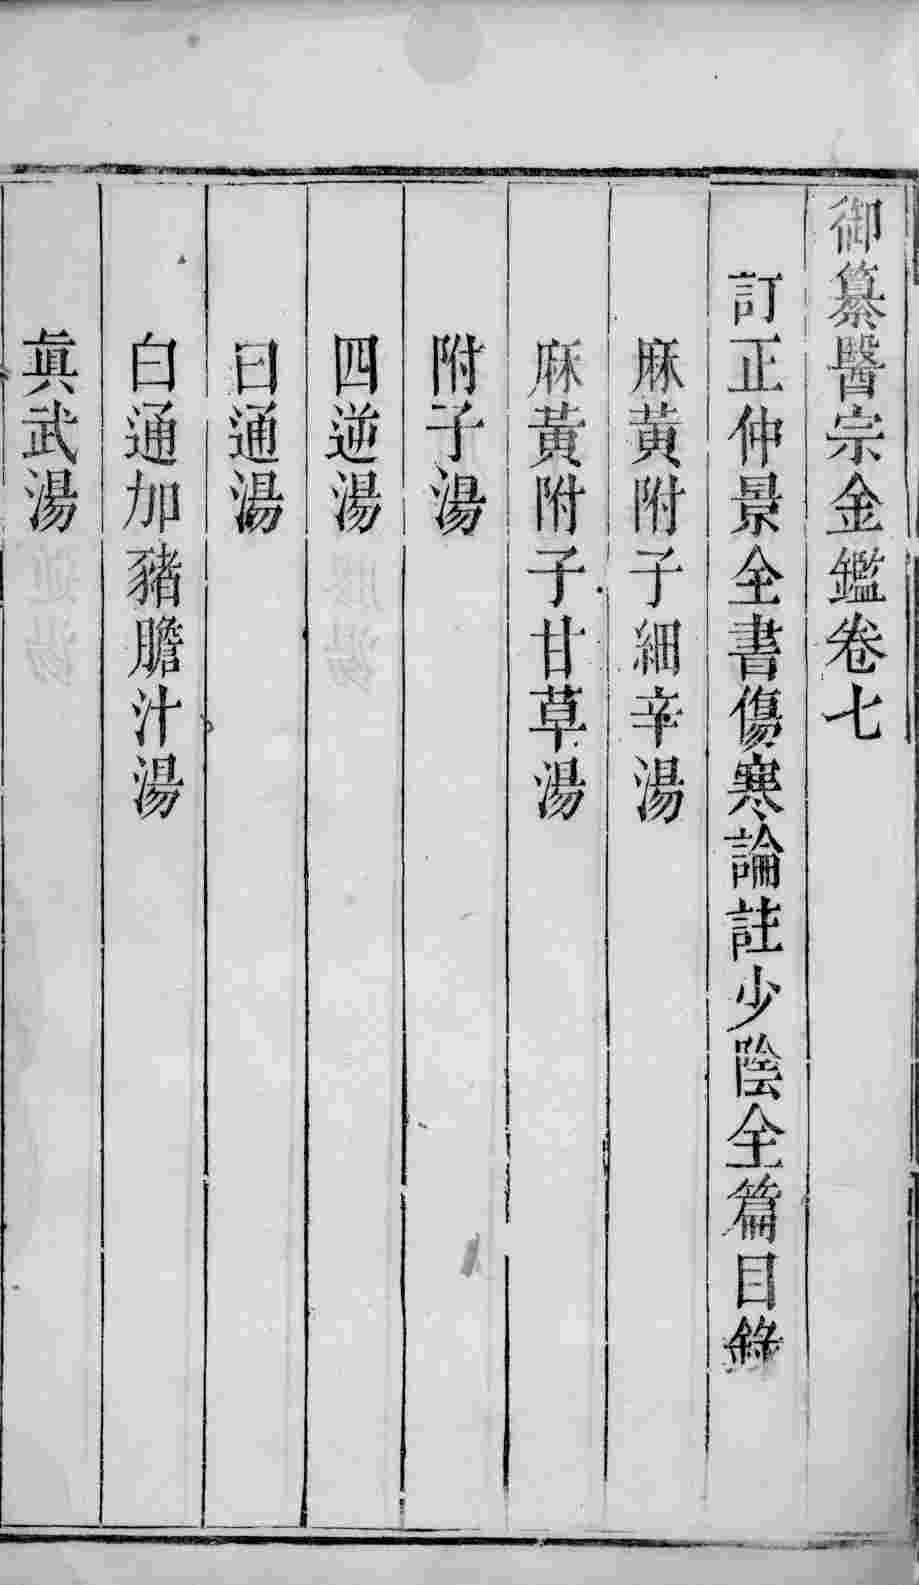 御纂醫宗金鑑卷七
訂正仲景全書傷寒論註少陰全篇目錄
麻黃附子細辛湯
麻黃附子甘草湯
附子湯
四逆湯
白通湯
白通加豬膽汁湯
眞武湯